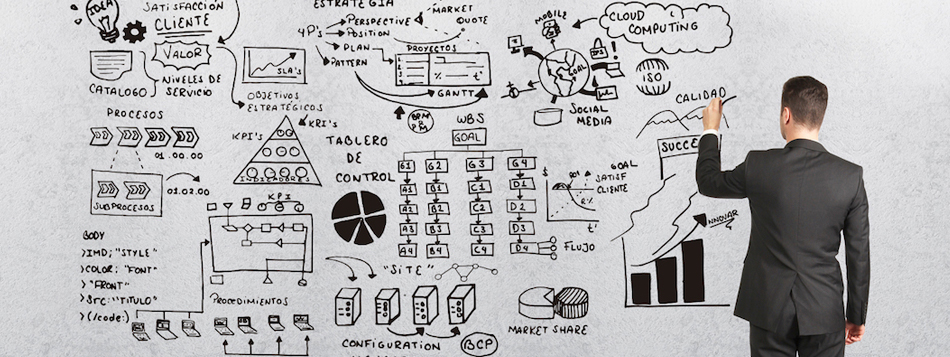 IDEA
SATISFACCIÓN
CLIENTE
VALOR
CATALOGO
NIVELES DE
SERVICIO
SLA's
OBJETIVOS
ESTRATÉGICOS
ESTRATEGIA
4P's
PERSPECTIVE
POSITION
PLAN
PATTERN
MARKET
QUOTE
PROYECTOS
%
t'
GANTT
BPM
PM
MOBILE
GOAL
CLOUD
COMPUTING
ISO
SOCIAL
MEDIA
CALIDAD
SUCCE
INNOVAR
PROCESOS
01.00.00
01.02.00
SUBPROCESOS
KPI's
KRI's
INDICADORES
KPI
TABLERO
DE
CONTROL
WBS
GOAL
G1 G2 G3 G4
A1 B1 C1 D1
A2 B2 C2 D2
A3 B3 C3 D3
A4 B4 C4 D4
$
ROI
R%
t
GOAL
SATISF
CLIENTE
FLUJO
BODY
>IMD; "STYLE"
>COLOR: "FONT"
>"FRONT"
>Src: "TITULO"
>(/code:)
PROCEDIMIENTOS
"SITE"
CONFIGURATION
BCP
MARKET SHARE